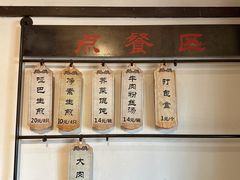 点餐区
哑巴生煎
20元/8只
净素生煎
10元/8只
荠菜馄饨
14元/碗
牛肉粉丝汤
14元/碗
打包盒
1元/个
大肉